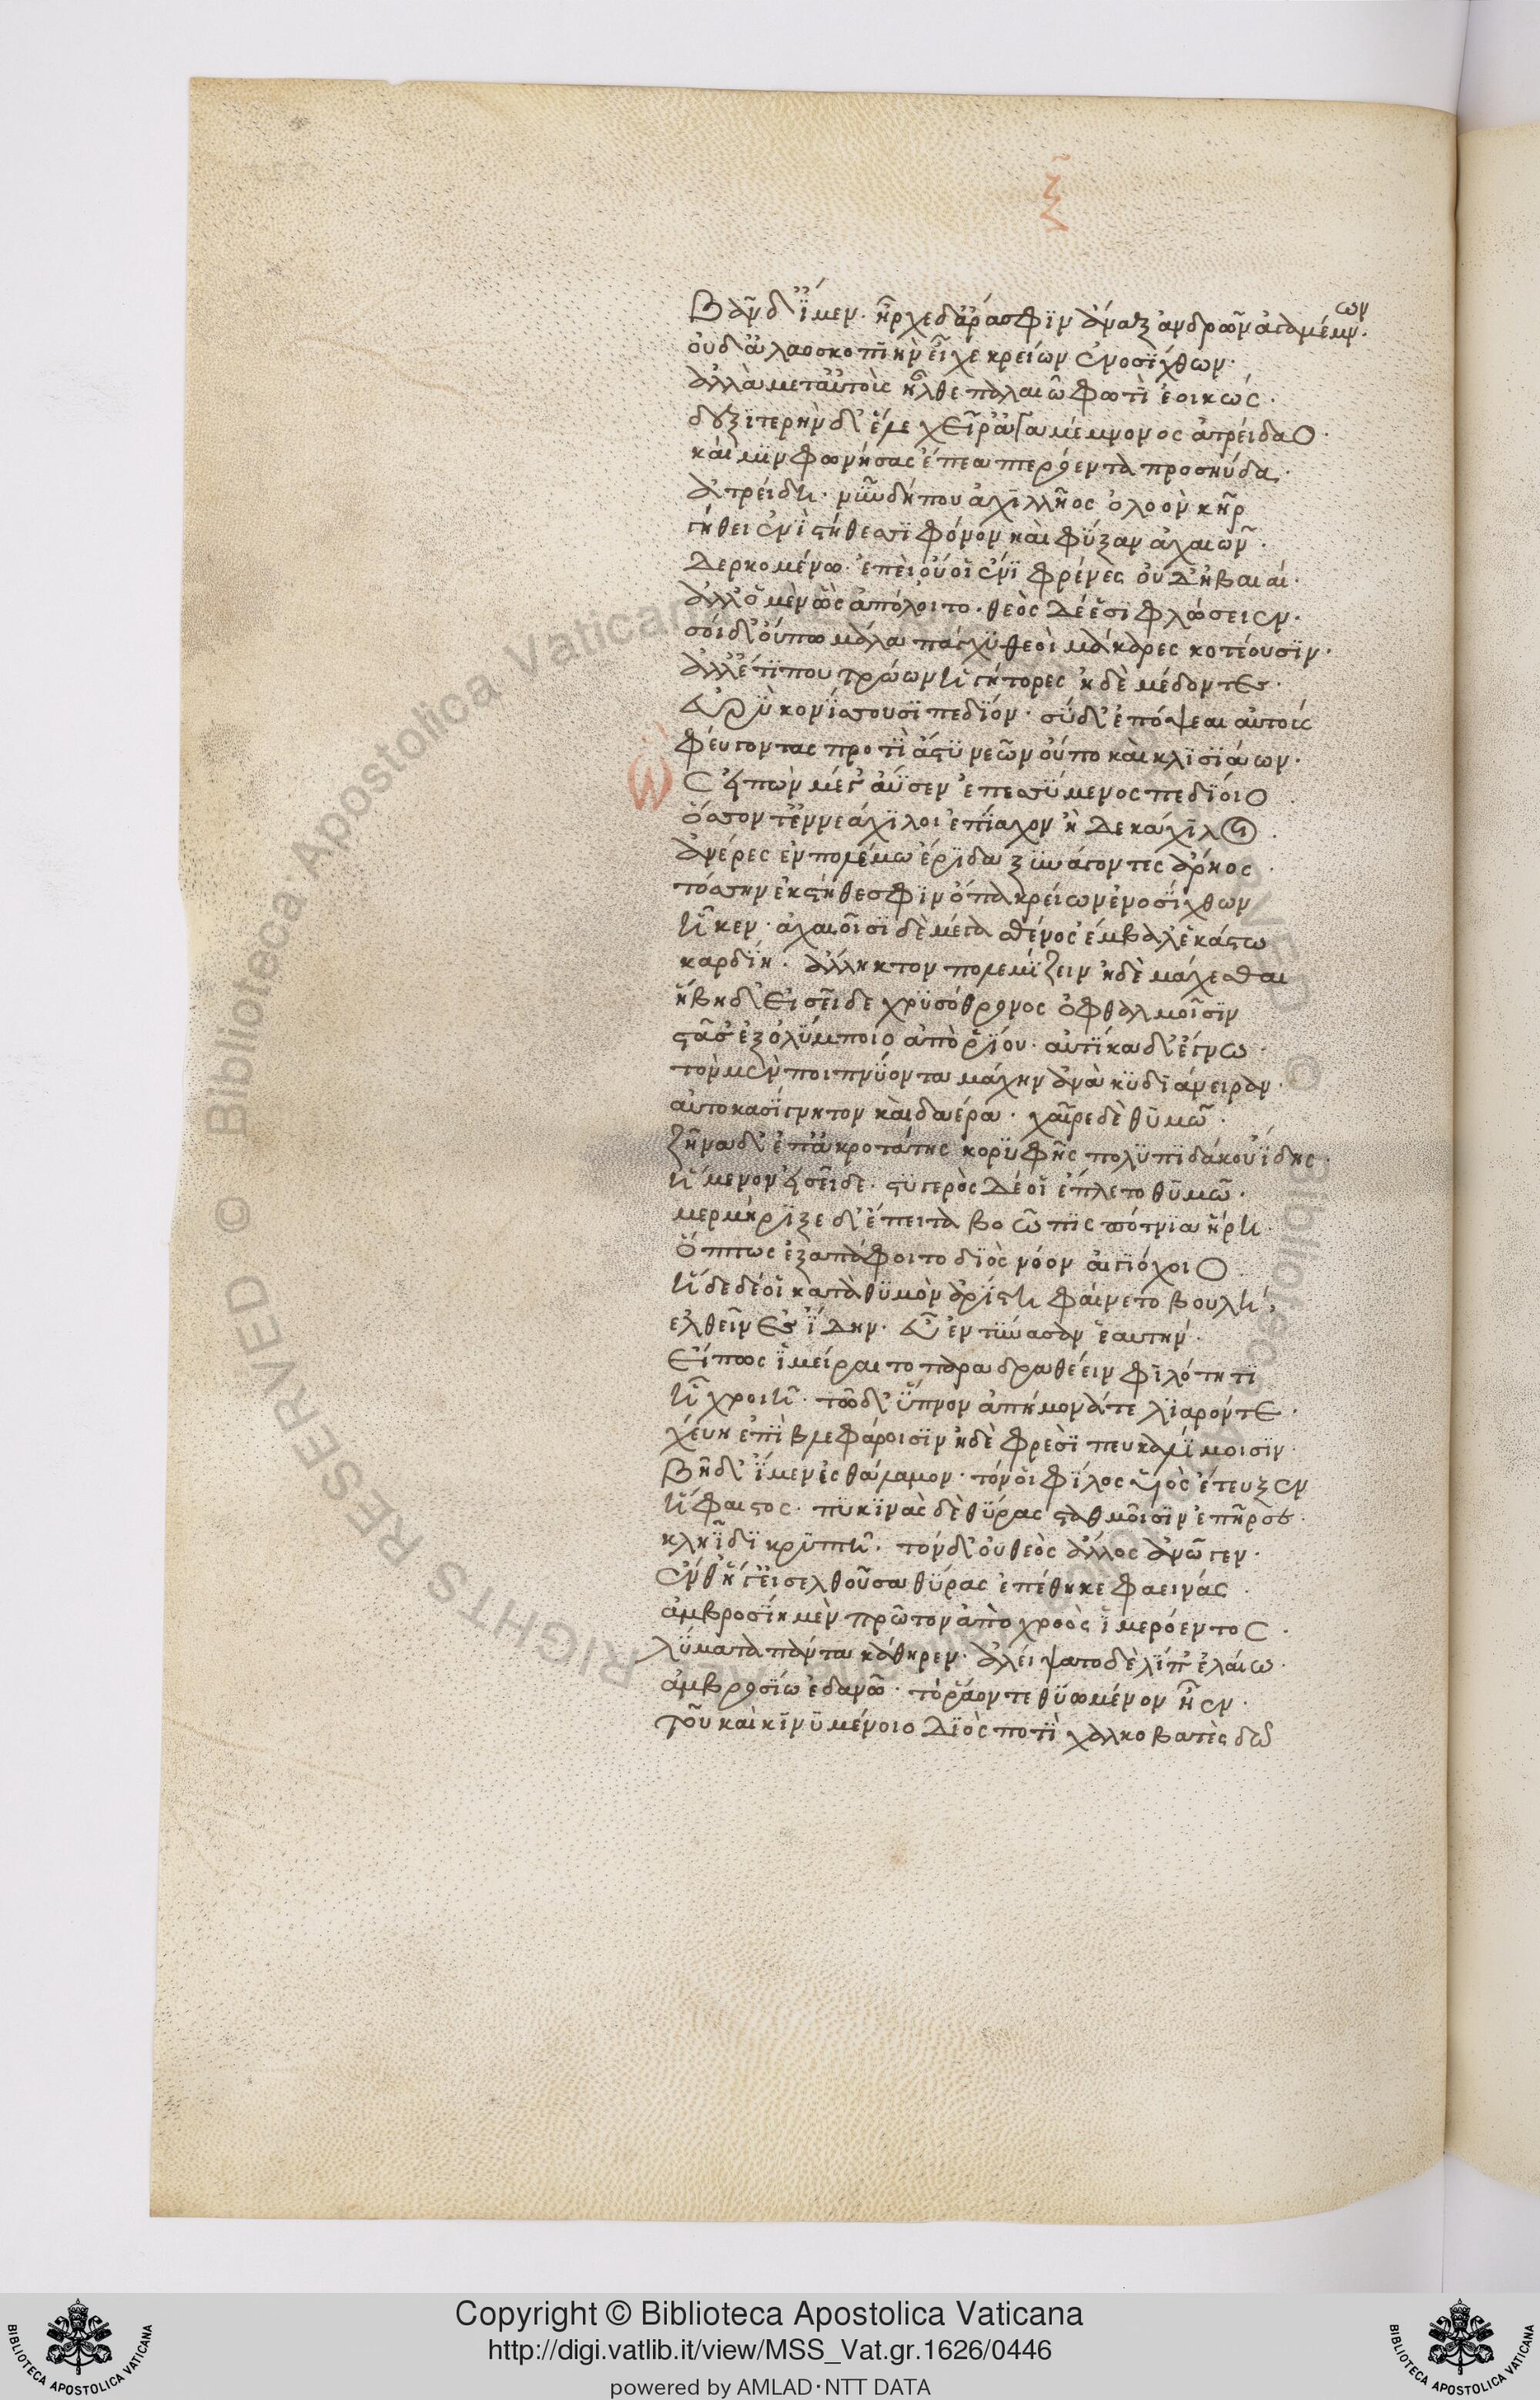 ξ
Βὰν δ' ἴμεν· ἦρχε δ' ἄρά σφϊν ἄναξ ἀνδρῶν ἀγαμέμνων·
οὐδ' ἀλαοσκοπϊὴν εἶχε κρείων ἐνοσΐχθων·
ἀλλὰ μετ' αὐτοὺς ἦλθε παλαιῶ φωτὶ ἐοικώς·
δεξϊτερὴν δ' ἕλε χεῖρ' ἀγαμέμνονος ἀτρείδαο·
καί μϊν φωνήσας ἔπεα πτερόεντα προσηύδα·
ἀτρείδη· νῦν δή που ἀχιλλῆος ὀλοὸν κῆρ
γηθεῖ ἐνὶ στήθεσσϊ φόνον καὶ φύζαν ἀχαιῶν·
δερκομένω· ἐπεὶ οὔ οἱ ἔνϊ φρένες οὐδ' ἠβαιαί·
ἀλλ' ὁ μὲν ὣς ἀπόλοιτο· θεὸς δέ ἑ σιφλώσειεν·
σοὶ δ' οὔπω μάλα πάγχυ θεοὶ μάκαρες κοτέουσϊν·
ἀλλ' ἔτϊ που τρώων ἡγήτορες ἠδὲ μέδοντες·
εὐρὺ κονίσσουσϊ πεδΐον· σὺ δ' ἐπόψεαι αὐτοὺς
φεύγοντας προτὶ ἄστυ νεῶν ἄπο καὶ κλϊσϊάων·
ὣς εἰπὼν μέγ' ἄϋσεν ἐπεσσύμενος πεδΐοιο
ὅσσον τ' ἐννεάχϊλοι ἐπΐαχον ἢ δεκάχϊλοι·
ἀνέρες ἐν πολέμω ἔρϊδα ξυνάγοντες ἄρηος·
τόσσην ἐκ στήθεσφϊν ὄπα κρείων ἐνοσΐχθων
ἧκεν· ἀχαιοῖσϊ δὲ μέγα σθένος ἔμβαλ' ἑκάστω
καρδΐη· ἄλληκτον πολεμΐζειν ἠδὲ μάχεσθαι
ἥρη δ' εἰσεῖδε χρυσόθρονος ὀφθαλμοῖσϊν
στᾶσ' ἐξ ὀλύμποιο ἀπὸ ῥΐου· αὐτΐκα δ' ἔγνω·
τὸν μὲν ποιπνύοντα μάχην ἀνὰ κυδϊάνειραν·
αὐτοκασΐγνητον καὶ δαέρα· χαῖρε δὲ θυμῶ·
ζῆνα δ' ἐπ' ἀκροτάτης κορυφῆς πολυπϊδάκου ἴδης·
ἥμενον εἰσεῖδε· στυγερὸς δέ οἱ ἔπλετο θυμῶ·
μερμήρϊξε δ' ἔπειτα βοῶπϊς πότνϊα ἥρη·
ὅππως ἐξαπάφοιτο δϊὸς νόον αἰγιόχοιο
ἥδε δέ οἱ κατὰ θυμὸν ἀρΐστη φαίνετο βουλή·
ἐλθεῖν εἰς ἴδην· εὖ ἐντύνασαν ἓ αὐτήν·
εἴ πως ἱμείραιτο παραδραθέειν φϊλότητϊ
ᾗ χροιῇ· τῶ δ' ὕπνον ἀπήμονά τε λϊαρόν τε·
χεύη ἐπὶ βλεφάροισϊν ἠδὲ φρεσϊ πευκαλΐμοισϊν·
Βῆ δ' ἴμεν ἐς θάλαμον· τόν οἱ φΐλος υἱὸς ἔτευξεν
ἥφαιστος· πυκϊνὰς δὲ θύρας σταθμοῖσϊν ἐπῆρσε·
κληῗδϊ κρυπτῇ· τὸν δ' οὐ θεὸς ἄλλος ἀνῶγεν·
ἔνθ' ἥγ' εἰσελθοῦσα θύρας ἐπέθηκε φαεινάς·
ἀμβροσΐη μὲν πρῶτον ἀπὸ χροὸς ἱμερόεντος·
λύματα πάντα κάθηρεν· ἀλείψατο δὲ λΐπ' ἐλαίω·
ἀμβροσΐω ἑδανῶ· τό ῥά οἱ τεθυωμένον ἦεν·
τοῦ καὶ κϊνυμένοιο δϊὸς ποτὶ χαλκοβατὲς δῶ
Copyright © Biblioteca Apostolica Vaticana
http://digi.vatlib.it/view/MSS_Vat.gr.1626/0446
powered by AMLAD·NTT DATA
BIBLIOTECA APOSTOLICA VATICANA
BIBLIOTECA APOSTOLICA VATICANA